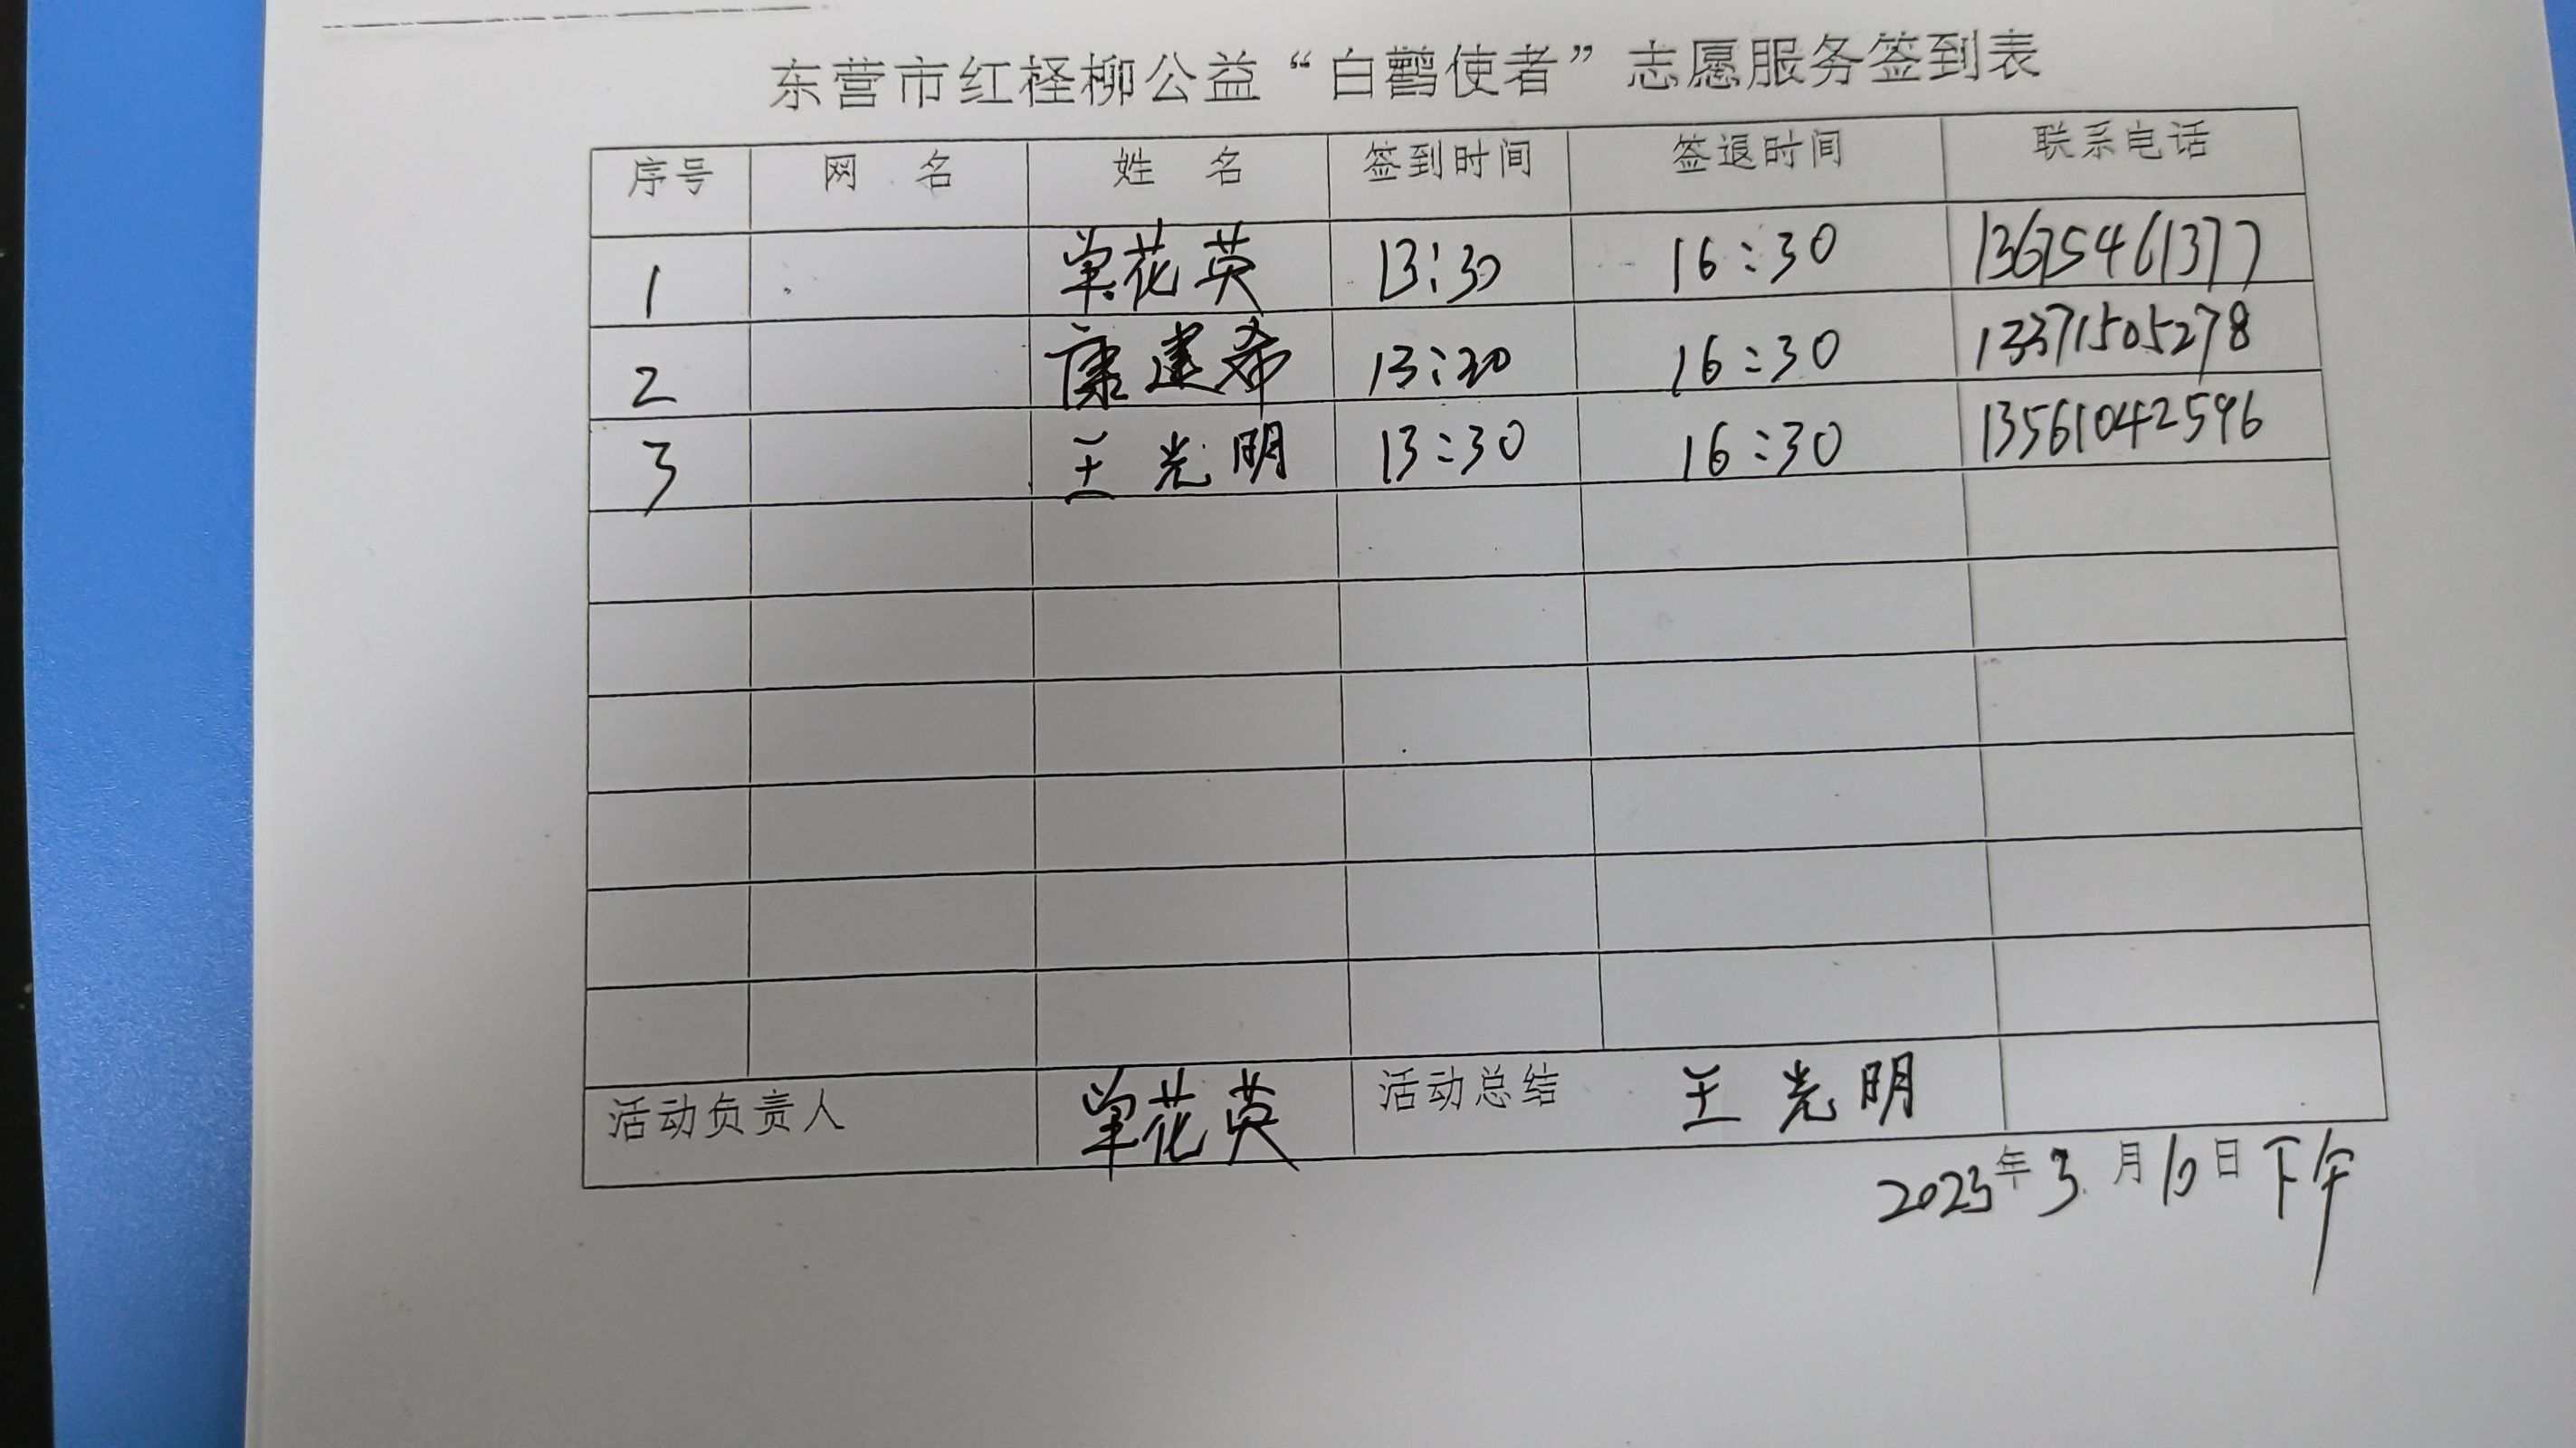 东营市红柽柳公益“白鹳使者”志愿服务签到表
序号 网 名 姓 名 签到时间 签退时间 联系电话
1 单花英 13:30 16:30 13675461377
2 康建希 13:30 16:30 13371505278
3 王光明 13:30 16:30 13561042596
活动负责人 单花英 活动总结 王光明
2023年3月10日下午